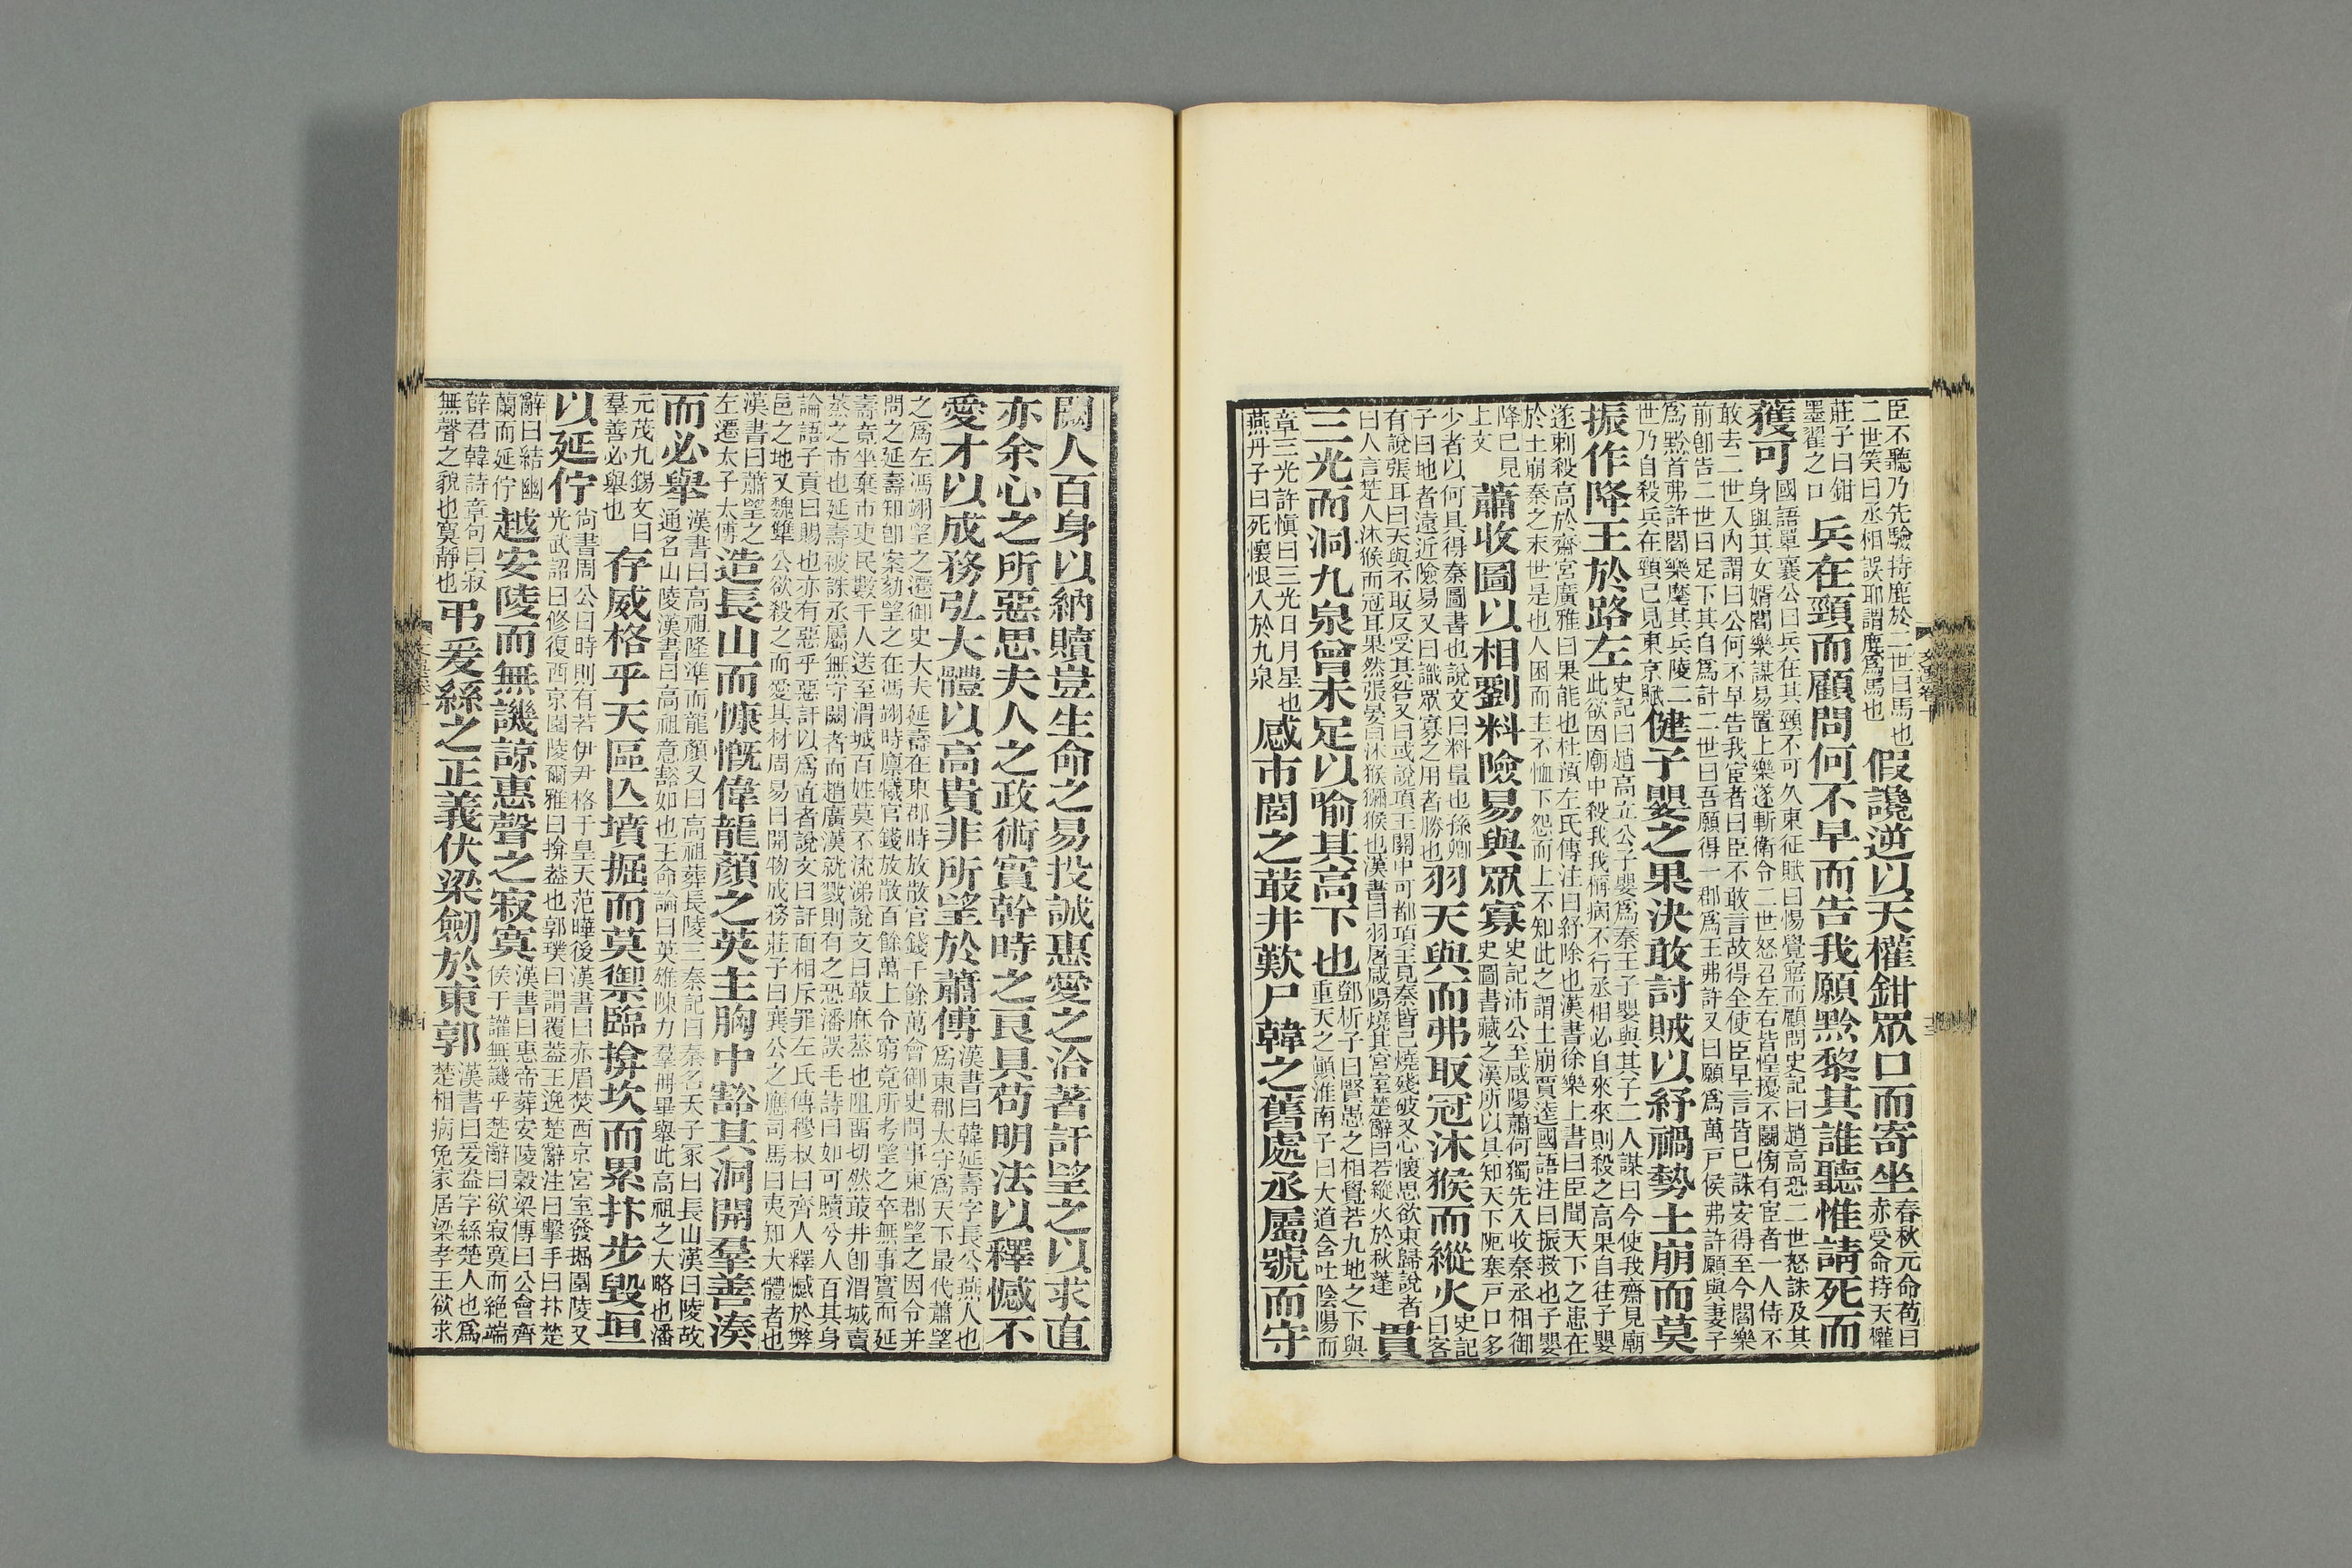 臣不聽乃先驗持鹿於二世曰馬也
二世笑曰丞相誤耶謂鹿爲馬也
假讒逆以天權鉗眾口而寄坐
春秋元命苞曰
赤受命持天權
莊子曰鉗
墨翟之口
兵在頸而顧問何不早而告我願黔黎其誰聽惟請死而
獲可
國語單襄公曰兵在其頸不可久東征賦曰惕覺寤而顧問史記曰趙高恐二世怒誅及其
身與其女婿閻樂謀易置上樂遂斬衛令二世怒召左右皆惶擾不鬭傍有宦者一人侍不
敢去二世入內謂曰公何不早告我宦者曰臣不敢言故得全使臣早言皆已誅安得至今閻樂
前卽告二世曰足下其自爲計二世曰吾願得一郡爲王弗許又曰願爲萬戶侯弗許願與妻子
爲黔首弗許閻樂麾其兵陵二
世乃自殺兵在頸已見東京賦
健子嬰之果決敢討賊以紓禍勢土崩而莫
振作降王於路左
史記曰趙高立公子嬰爲秦王子嬰與其子二人謀曰今使我齋見廟
此欲因廟中殺我我稱病不行丞相必自來來則殺之高果自往子嬰
遂刺殺高於齋宮廣雅曰果能也杜預左氏傳注曰紓除也漢書徐樂上書曰臣聞天下之患在
於土崩秦之末世是也人困而主不恤下怨而上不知此之謂土崩賈逵國語注曰振救也子嬰
降已見
上文
蕭收圖以相劉料險易與眾寡
史記沛公至咸陽蕭何獨先入收秦丞相御
史圖書藏之漢所以具知天下阨塞戶口多
少者以何具得秦圖書也說文曰料量也孫卿
子曰地者遠近險易又曰識眾寡之用者勝也
羽天與而弗取冠沐猴而縱火
史記
曰客
有說張耳曰天與不取反受其咎又曰或說項王關中可都項王見秦皆已燒殘破又心懷思欲東歸說者
曰人言楚人沐猴而冠耳果然張晏曰沐猴獼猴也漢書曰羽屠咸陽燒其宮室楚辭曰若縱火於秋蓬
貫
三光而洞九泉曾未足以喻其高下也
鄧析子曰賢愚之相覺若九地之下與
重天之顚淮南子曰大道含吐陰陽而
章三光許愼曰三光日月星也
燕丹子曰死懷恨入於九泉
感市閭之菆井歎尸韓之舊處丞屬號而守
闕人百身以納贖豈生命之易投誠惠愛之洽著訐望之以求直
亦余心之所惡思夫人之政術實幹時之良具苟明法以釋憾不
愛才以成務弘大體以高貴非所望於蕭傅
漢書曰韓延壽字長公燕人也
爲東郡太守爲天下最代蕭望
之爲左馮翊望之遷御史大夫延壽在東郡時放散官錢千餘萬會御史問事東郡望之因令并
問之延壽知卽案劾望之在馮翊時廩犧官錢放散百餘萬上令窮竟所考望之卒無事實而延
壽竟坐棄市吏民數千人送至渭城百姓莫不流涕說文曰菆麻蒸也阻畱切然菆井卽渭城賣
蒸之市也延壽被誅丞屬無守闕者而趙廣漢就戮則有之恐潘誤毛詩曰如可贖兮人百其身
論語子貢曰賜也亦有惡乎惡訐以爲直者說文曰訐面相斥罪左氏傳穆叔曰齊人釋憾於弊
邑之地又魏犨公欲殺之而愛其材周易曰開物成務莊子曰襄公之應司馬曰夷知大體者也
漢書曰蕭望之
左遷太子太傅
造長山而慷慨偉龍顏之英主胸中豁其洞開羣善湊
而必舉
漢書曰高祖隆準而龍顏又曰高祖葬長陵三秦記曰秦名天子冢曰長山漢曰陵故
通名山陵漢書曰高祖意豁如也王命論曰英雄陳力羣冊畢舉此高祖之大略也潘
元茂九錫文曰
羣善必舉也
存威格乎天區亾墳掘而莫禦臨揜坎而累抃步毀垣
以延佇
尙書周公曰時則有若伊尹格于皇天范曄後漢書曰赤眉焚西京宮室發掘園陵又
光武詔曰修復西京園陵爾雅曰揜葢也郭璞曰謂覆葢王逸楚辭注曰擊手曰抃楚
辭曰結幽
蘭而延佇
越安陵而無譏諒惠聲之寂寞
漢書曰惠帝葬安陵穀梁傳曰公會齊
侯于讙無譏乎楚辭曰欲寂寞而絶端
薛君韓詩章句曰寂
無聲之貌也寞靜也
弔爰絲之正義伏梁劒於東郭
漢書曰爰盎字絲楚人也爲
楚相病免家居梁孝王欲求